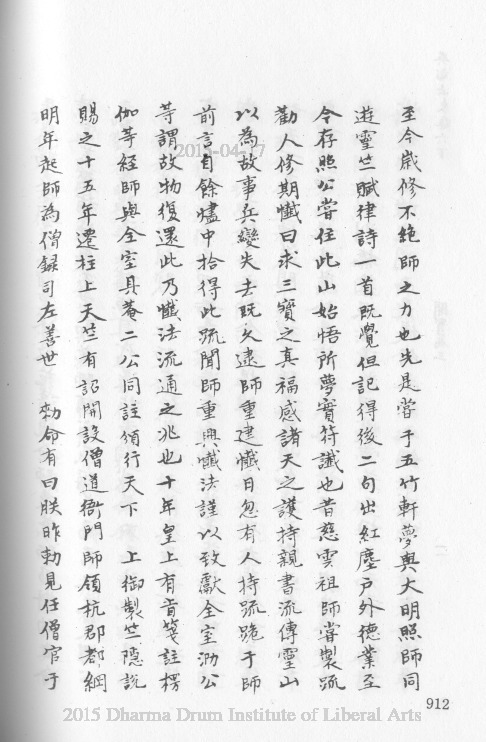 至今歲修不絕師之力也先是嘗于五竹軒夢與大明照師同
遊靈竺賦律詩一首既覺但記得後二句出紅塵戶外德業至
今存照公嘗住此山始悟所夢實符讖也昔慈雲祖師嘗製疏
勸人修期懺曰求三寶之真福感諸天之護持親書流傳靈山
以為故事兵變失去既久逮師重建懺日忽有人持疏跪于師
前言自餘燼中拾得此疏聞師重興懺法謹以致獻全室泐公
等謂故物復還此乃懺法流通之兆也十年皇上有旨箋註楞
伽等經師與全室具菴二公同註頒行天下 上御製竺隱說
賜之十五年遷住上天竺有詔開設僧道衙門師領杭郡都綱
明年起師為僧錄司左善世 勅命有曰朕昨勅見任僧官于
912
2015-04-17
2015 Dharma Drum Institute of Liberal Arts